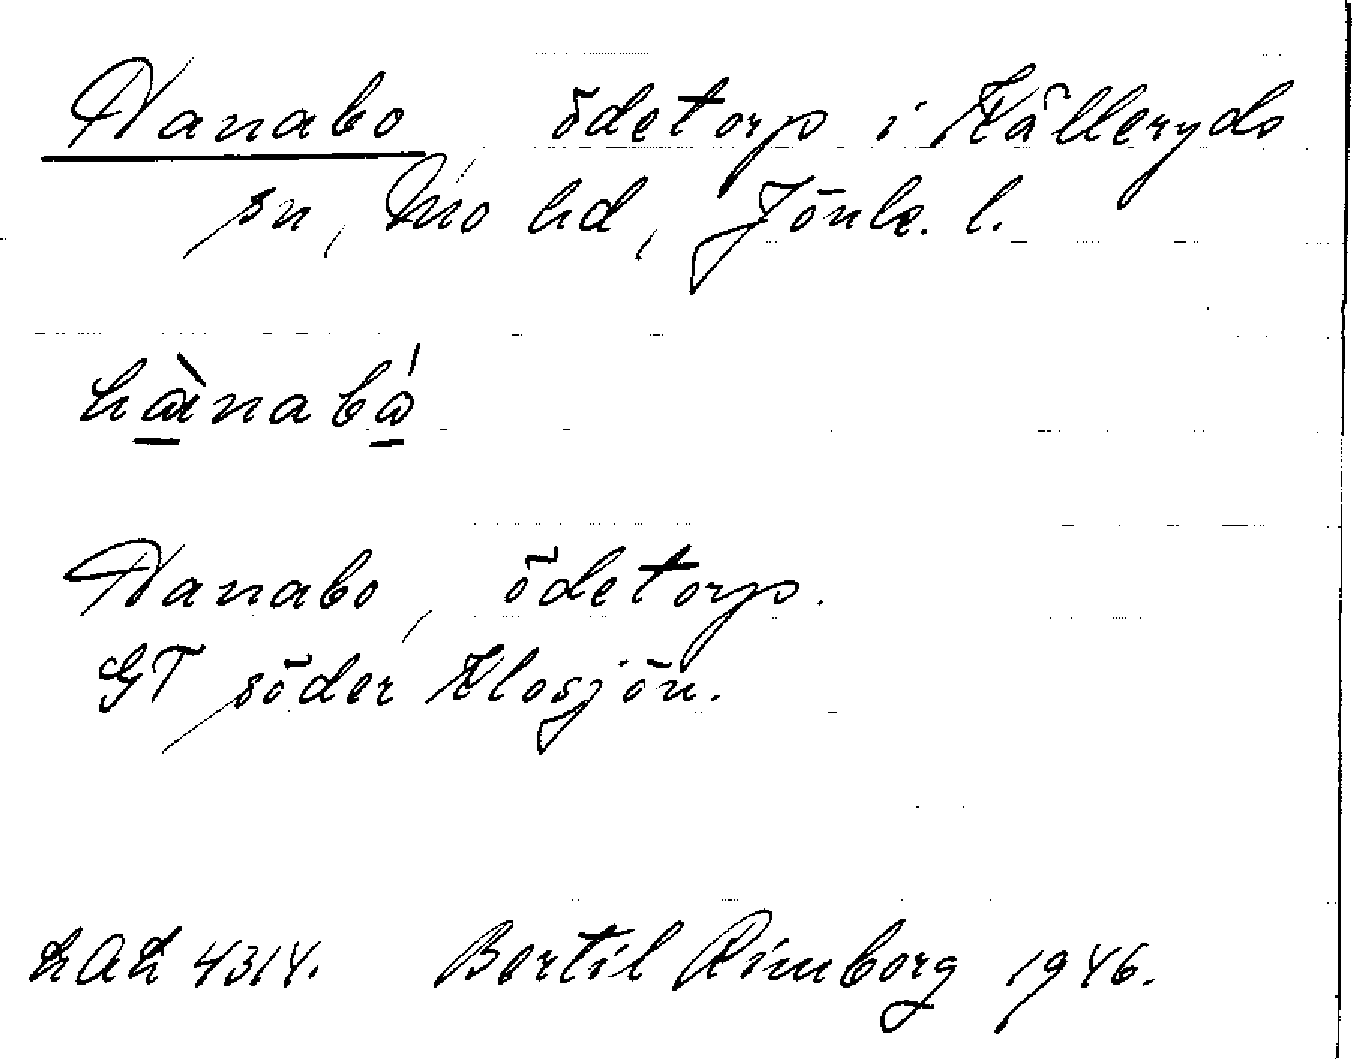 Hanabo, ödetorp i Kålleryds
sn, Mo hd, Jönk. l.
Hanabo, ödetorp.
GT söder Klosjön.
LAL 4314. Bertil Rimborg 1946.